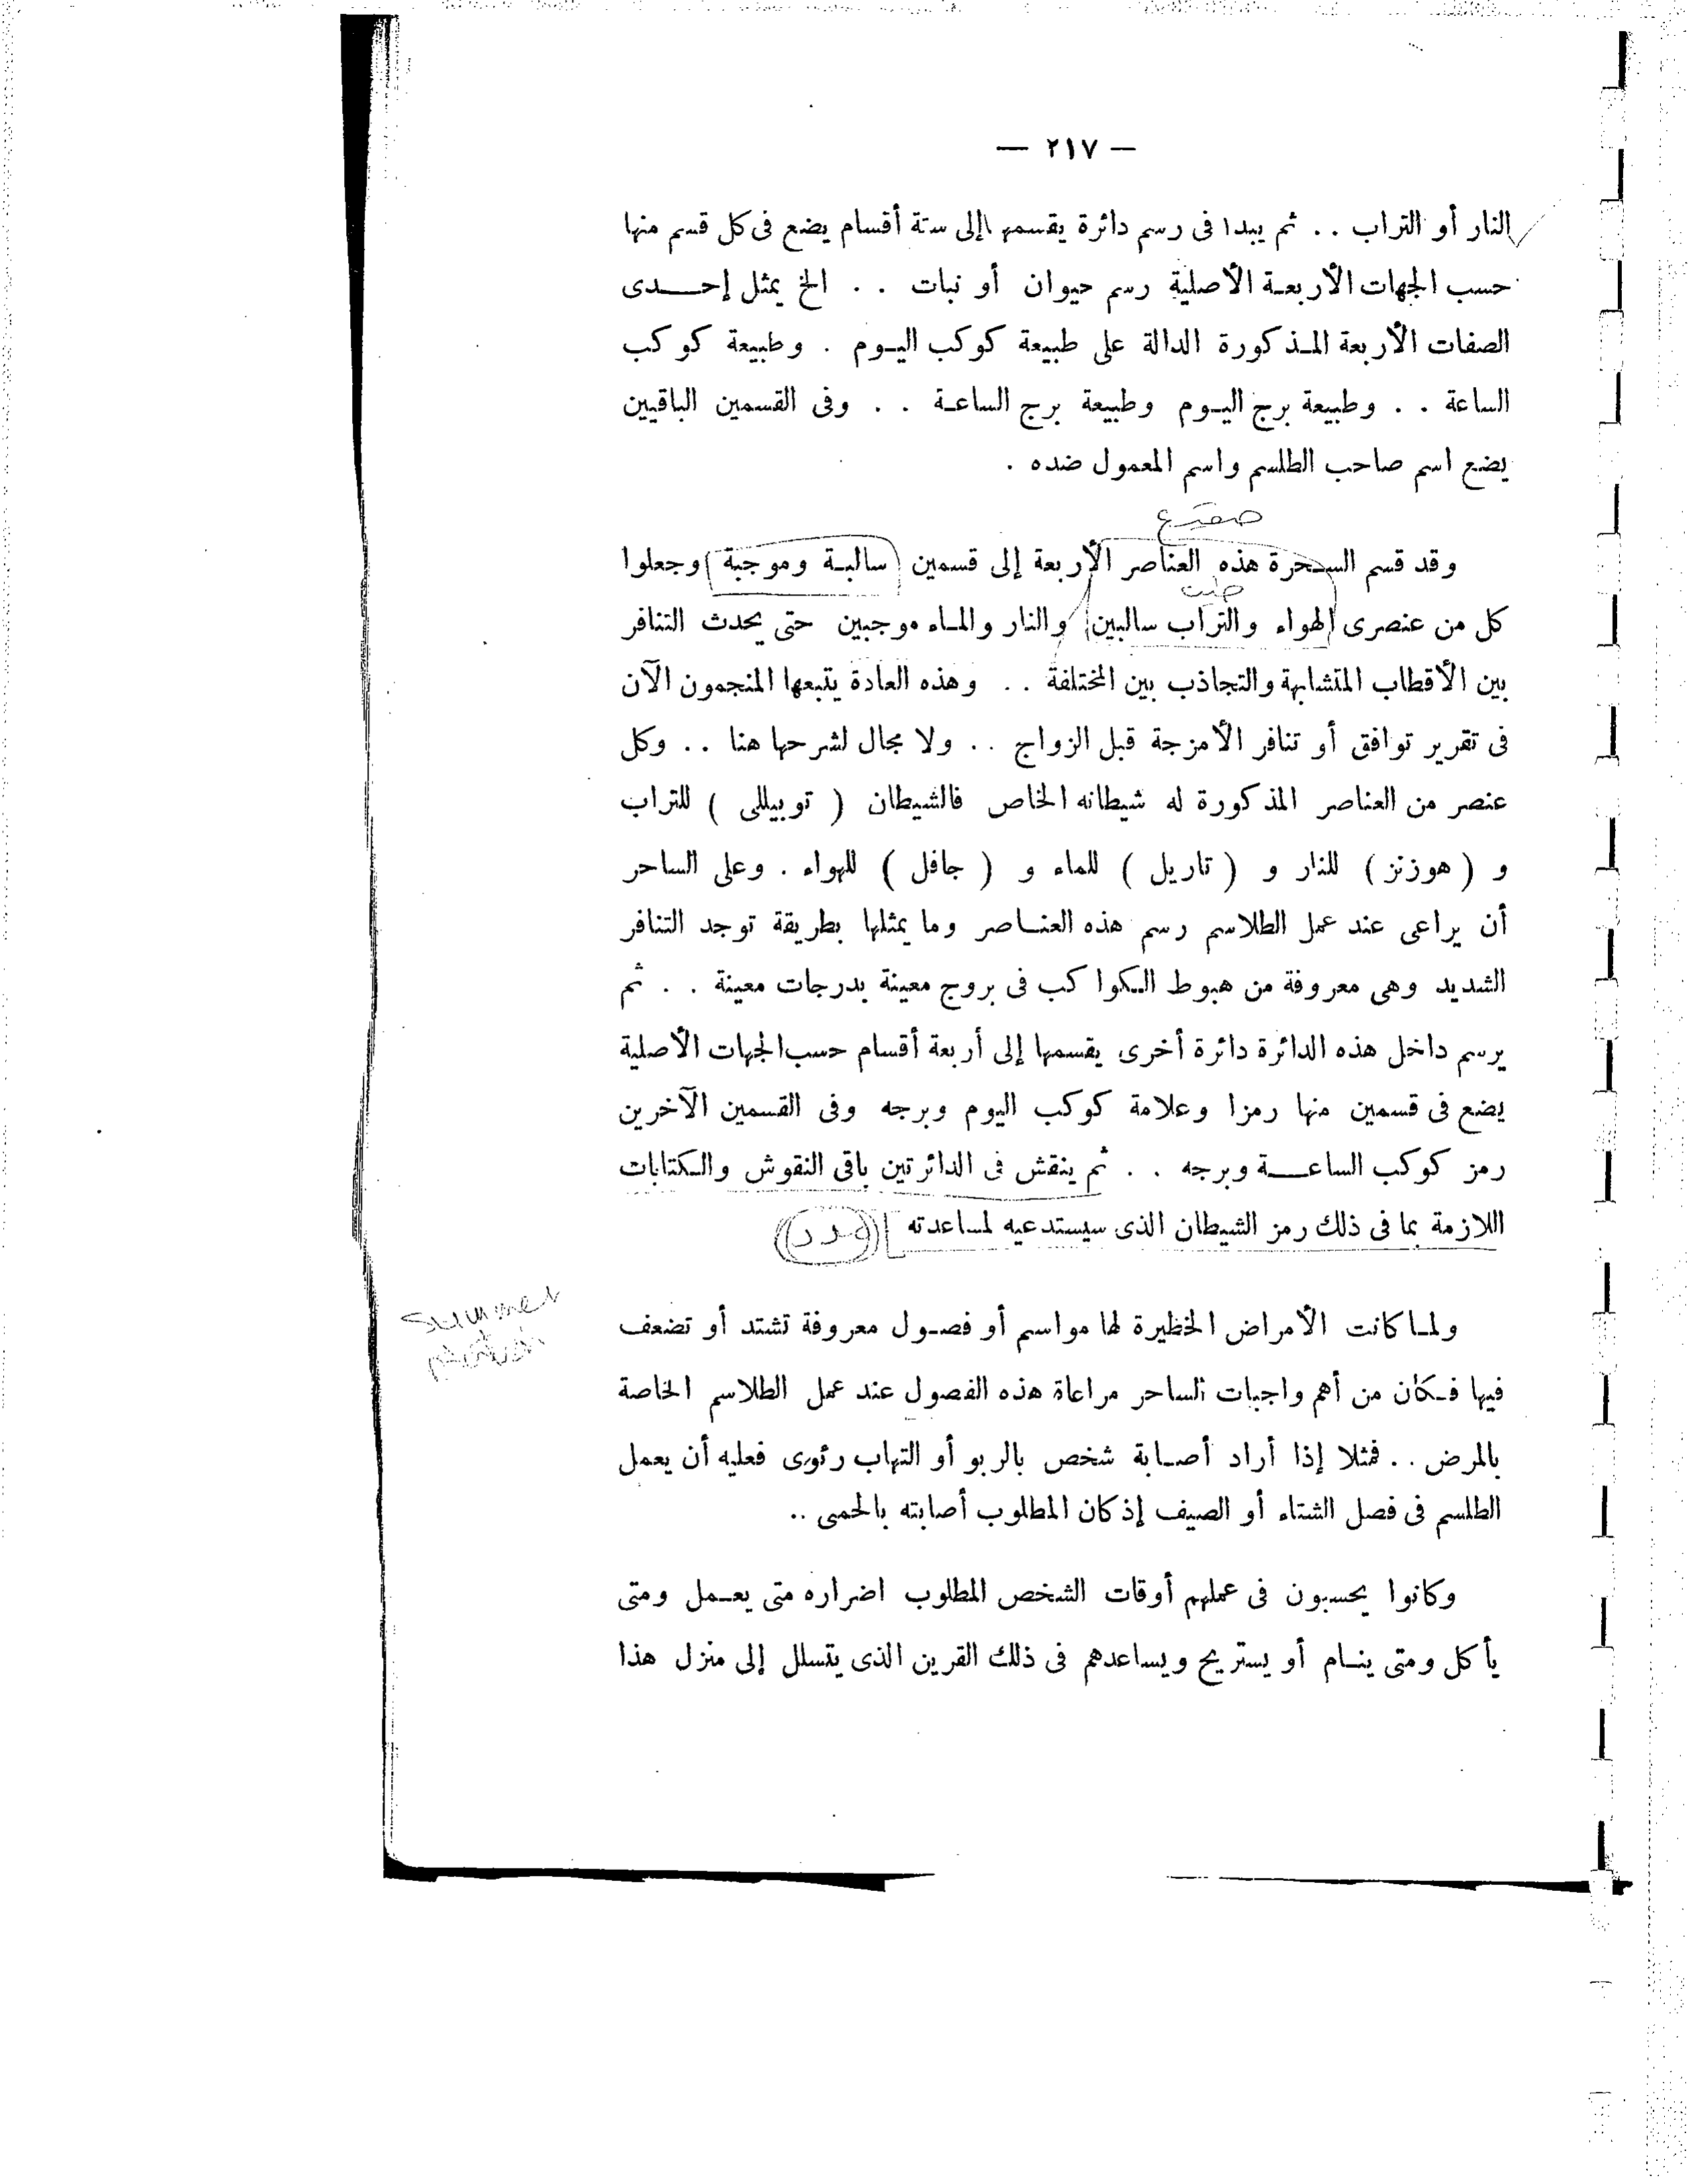 — ٢١٧ —
النار أو التراب . . ثم يبدا فى رسم دائرة يقسمها إلى ستة أقسام يضع فى كل قسم منها
حسب الجهات الأربعة الأصلية رسم حيوان أو نبات . . الخ يمثل إحدى
الصفات الأربعة المذكورة الدالة على طبيعة كوكب اليوم . وطبيعة كوكب
الساعة . . وطبيعة برج اليوم وطبيعة برج الساعة . . وفى القسمين الباقيين
يضع اسم صاحب الطلسم واسم المعمول ضده .
وقد قسم السحرة هذه العناصر الأربعة إلى قسمين سالبة وموجبة وجعلوا
كل من عنصرى الهواء والتراب سالبين والنار والماء موجبين حتى يحدث التنافر
بين الأقطاب المتشابهة والتجاذب بين المختلفة . . وهذه العادة يتبعها المنجمون الآن
فى تقرير توافق أو تنافر الأمزجة قبل الزواج . . ولا مجال لشرحها هنا . . وكل
عنصر من العناصر المذكورة له شيطانه الخاص فالشيطان ( توبيللى ) للتراب
و ( هوزنز ) للنار و ( تاريل ) للماء و ( جافل ) للهواء . وعلى الساحر
أن يراعى عند عمل الطلاسم رسم هذه العناصر وما يمثلها بطريقة توجد التنافر
الشديد وهى معروفة من هبوط الكواكب فى بروج معينة بدرجات معينة . . ثم
يرسم داخل هذه الدائرة دائرة أخرى يقسمها إلى أربعة أقسام حسب الجهات الأصلية
يضع فى قسمين منها رمزا وعلامة كوكب اليوم وبرجه وفى القسمين الآخرين
رمز كوكب الساعة وبرجه . . ثم ينقش فى الدائرتين باقى النقوش والكتابات
اللازمة بما فى ذلك رمز الشيطان الذى سيستدعيه لمساعدته
summer
ولما كانت الأمراض الخطيرة لها مواسم أو فصول معروفة تشتد أو تضعف
فيها فكان من أهم واجبات الساحر مراعاة هذه الفصول عند عمل الطلاسم الخاصة
بالمرض . . فمثلا إذا أراد أصابة شخص بالربو أو التهاب رئوى فعليه أن يعمل
الطلسم فى فصل الشتاء أو الصيف إذ كان المطلوب أصابته بالحمى ..
وكانوا يحسبون فى عملهم أوقات الشخص المطلوب اضراره متى يعمل ومتى
يأكل ومتى ينام أو يستريح ويساعدهم فى ذلك القرين الذى يتسلل إلى منزل هذا